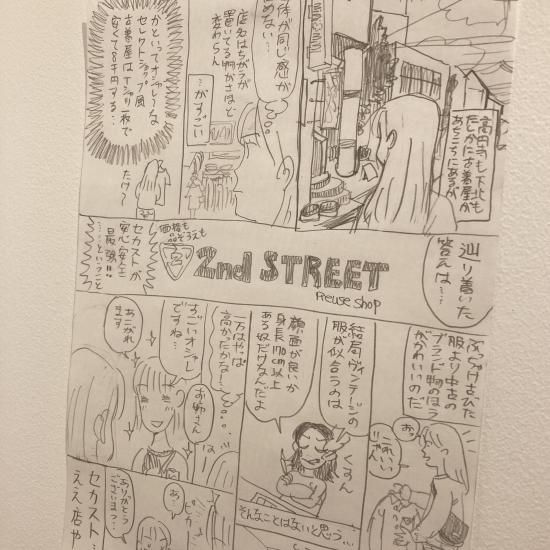 高円寺も下北も
たしかに古着屋が
あちこちにあるが
全体が同じ感が
否めない…
店名はちがうが
置いてる物がさほど
変わらん
…がすごい
かといってオシャレな
セレクトショップ風
古着屋はTシャツ一枚で
安くて8千円する…
たけ〜
辿り着いた
答えは…
価格も
品ぞろえも
2nd STREET
Reuse shop
セカストが
安心安全
最強!!!
……ということ
ぶっちゃけ古びた
服より中古の
ブランド物のほう
がかわいいのだ
おっ
これいい
じゃん
結局ヴィンテージの
服が似合うのは
顔面が良いか
身長170cm以上
ある奴だけなんだよ
くすん
そんなことはないと思う…
一万はやっぱ
高かったかな…
すごいオシャレ
ですね…
お姉さん
あこがれ
ます
は
あ…
ピカ
ありがとう
ございまっ…
セカスト…
ええ店や